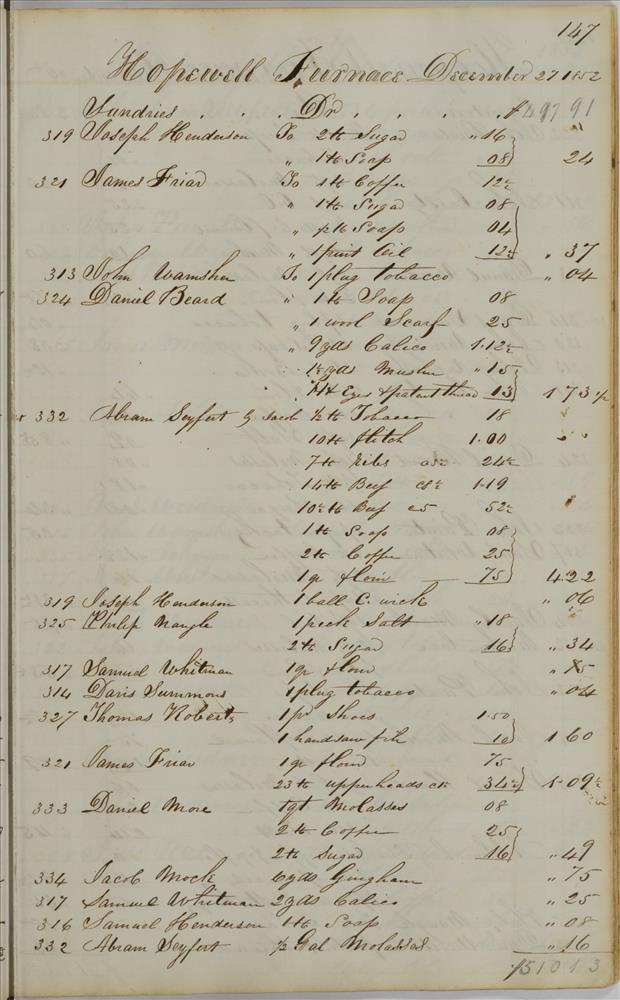 147
Hopewell Furnace December 27 1852
Sundries . . . Dr . . . . $497 91
319 Joseph Henderson To 2 lb Sugar " 16
" 1 lb Soap 08 24
321 James Friar To 1 lb Coffee 12½
" 1 lb Sugar 08
" ½ lb Soap 04
" 1 pint Oil 12½ " 37
313 John Wamsher To 1 plug tobacco " 04
324 Daniel Beard " 1 lb Soap 08
" 1 wool Scarf 25
" 9 yds Calico 1.12½
1½ yds Muslin " 15
H & Eyes & patent thread 13 1 73 ½
332 Abram Seyfert by Jacob ½ lb Tobacco 18
10 lb flitch 1.00
7 lb Ribs 24½
14 lb Beef c8½ 1.19
10½ lb Beef c5 52½
1 lb Soap 08
2 lb Coffee 25
1 qr flour 75 4 22
319 Joseph Henderson 1 ball C. wick " 06
325 Philip Nangle 1 peck Salt " 18
2 lb Sugar 16 " 34
317 Samuel Whitman 1 qr flour " 75
314 Davis Summons 1 plug tobacco " 04
327 Thomas Roberts 1 pr Shoes 1.50
1 handsaw file 10 1 60
321 James Friar 1 qr flour 75
23 lb upper heads 34½ 1.09½
333 Daniel More 1 qt Molasses 08
2 lb Coffee 25
2 lb Sugar 16 " 49
334 Jacob Mock 6 yds Gingham " 75
317 Samuel Whitman 2 yds Calico " 25
316 Samuel Henderson 1 lb Soap " 08
332 Abram Seyfert ½ Gal Molasses " 16
$510 13